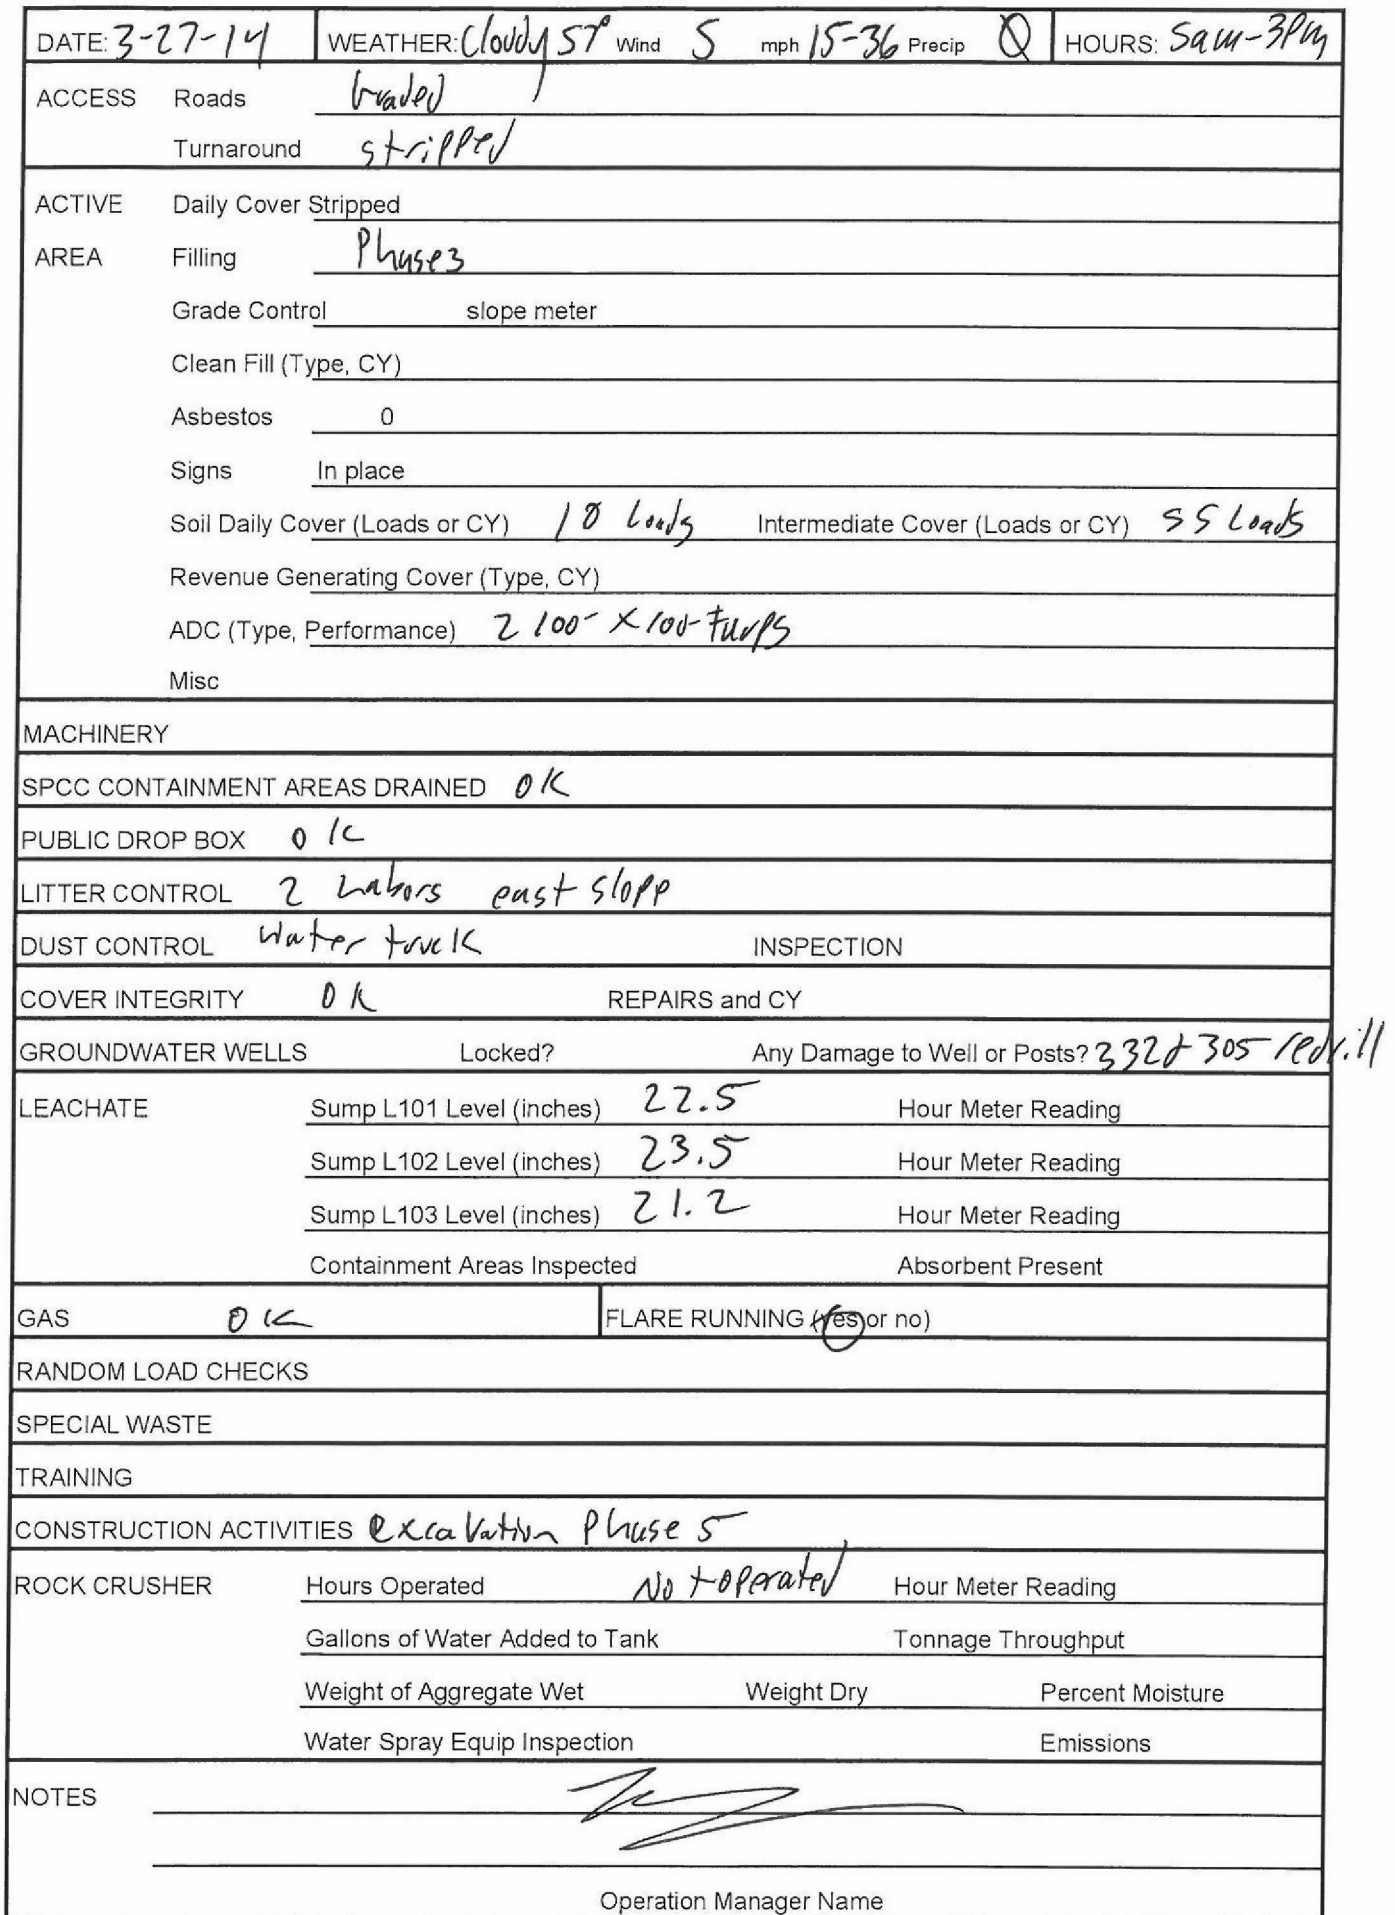 DATE: 3-27-14 WEATHER: Cloudy 57° Wind S mph 15-36 Precip 0 HOURS: 5am-3pm
ACCESS Roads Graded
Turnaround stripped
ACTIVE Daily Cover Stripped
AREA Filling Phase 3
Grade Control slope meter
Clean Fill (Type, CY)
Asbestos 0
Signs In place
Soil Daily Cover (Loads or CY) 10 Loads Intermediate Cover (Loads or CY) 55 Loads
Revenue Generating Cover (Type, CY)
ADC (Type, Performance) 2 100- x 100- Tarps
Misc
MACHINERY
SPCC CONTAINMENT AREAS DRAINED OK
PUBLIC DROP BOX OK
LITTER CONTROL 2 Labors east slope
DUST CONTROL Water truck INSPECTION
COVER INTEGRITY OK REPAIRS and CY
GROUNDWATER WELLS Locked? Any Damage to Well or Posts? 332 & 305 redrill
LEACHATE Sump L101 Level (inches) 22.5 Hour Meter Reading
Sump L102 Level (inches) 23.5 Hour Meter Reading
Sump L103 Level (inches) 21.2 Hour Meter Reading
Containment Areas Inspected Absorbent Present
GAS OK FLARE RUNNING (yes or no)
RANDOM LOAD CHECKS
SPECIAL WASTE
TRAINING
CONSTRUCTION ACTIVITIES excavation Phase 5
ROCK CRUSHER Hours Operated Not operated Hour Meter Reading
Gallons of Water Added to Tank Tonnage Throughput
Weight of Aggregate Wet Weight Dry Percent Moisture
Water Spray Equip Inspection Emissions
NOTES
Operation Manager Name